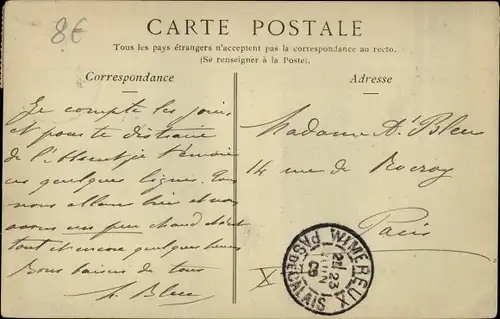 8€
CARTE POSTALE
Tous les pays étrangers n'acceptent pas la correspondance au recto.
(Se renseigner à la Poste).
Correspondance
Adresse
Je compte les jours
et pour te distraire
de l'absent je t'envoie
ces quelques lignes.
nous allons bien et nous
avons un peu chaud
tout et encore quelques
Bons baisers de tous
A. Bleu
Madame A. Bleu
14 rue de Rocroy
Paris
X
WIMEREUX
PAS-DE-CALAIS